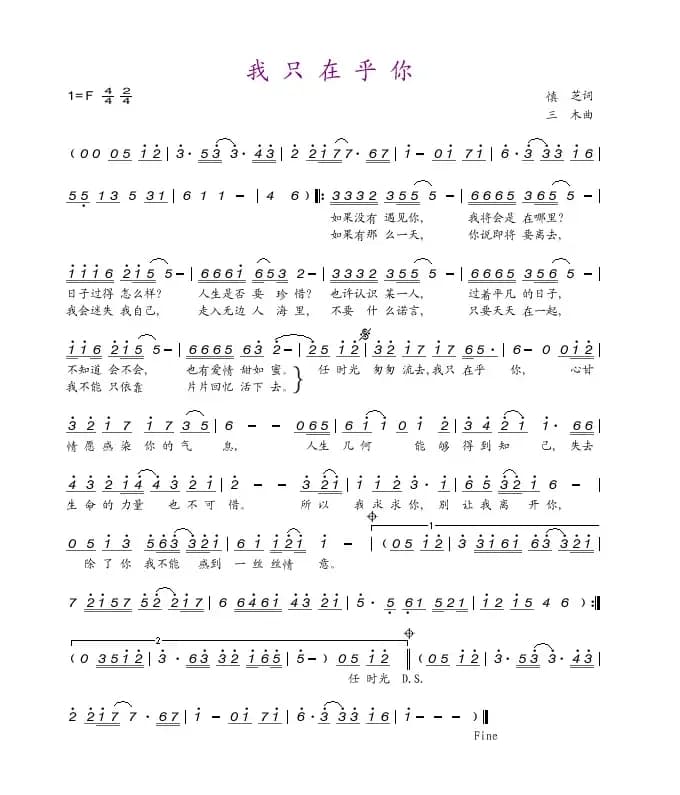 我只在乎你
1=F 4/4 2/4
慎 芝词
三 木曲
( 0 0 0 5 1 2 | 3 · 5 3 3 · 4 3 | 2 2 2 1 7 7 · 6 7 | 1 - 0 1 7 1 | 6 · 3 3 3 1 6 |
5 5 1 3 5 3 1 | 6 1 1 - | 4 6 ) ‖: 3 3 3 2 3 5 5 5 - | 6 6 6 5 3 6 5 5 - |
如果没有 遇见你, 我将会是 在哪里?
如果有那 么一天, 你说即将 要离去,
1 1 1 6 2 1 5 5 - | 6 6 6 1 6 5 3 2 - | 3 3 3 2 3 5 5 5 - | 6 6 6 5 3 6 5 5 - |
日子过得 怎么样? 人生是否 要 珍惜? 也许认识 某一人, 过着平凡 的日子,
我会迷失 我自己, 走入无边 人 海里, 不要 什么诺言, 只要天天 在一起,
1 1 6 2 1 5 5 - | 6 6 6 5 6 3 2 - | 2 5 1 2 | 3 2 1 7 1 7 | 6 5 · | 6 - 0 0 1 2 |
不知道 会不会, 也有爱情 甜如 蜜。 任 时光 匆匆 流去,我只 在乎 你, 心甘
我不能 只依靠 片片回忆 活下 去。
3 2 1 7 1 7 3 5 | 6 - - | 0 6 5 | 6 1 1 0 1 | 2 3 4 3 2 3 | 1 · 6 6 |
情愿感染 你的气 息, 人生 几何 能 够 得到 知 己, 失去
4 3 2 1 4 4 3 2 1 | 2 - - | 3 2 1 | 1 1 2 3 · 1 | 6 5 3 2 1 3 | 1 - |
生命的力量 也不可 惜。 所以 我求求你, 别 让我离开 你,
0 5 1 3 | 5 6 3 3 2 1 | 6 1 1 2 1 1 - | ( 0 5 1 2 | 3 3 1 6 1 6 3 3 2 1 |
除了你 我不能 感到 一丝丝情 意。
1
7 2 1 5 7 5 2 2 1 7 | 6 6 4 6 1 4 3 2 1 | 5 · 5 6 1 5 2 1 | 1 2 1 5 4 6 ) :‖
2
( 0 3 5 1 2 | 3 · 6 3 3 2 1 6 5 | 5 - ) 0 5 1 2 ‖ ( 0 5 1 2 | 3 · 5 3 3 · 4 3 |
任 时光 D.S.
2 2 2 1 7 7 · 6 7 | 1 - 0 1 7 1 | 6 · 3 3 3 1 6 | 1 - - - ) ‖
Fine